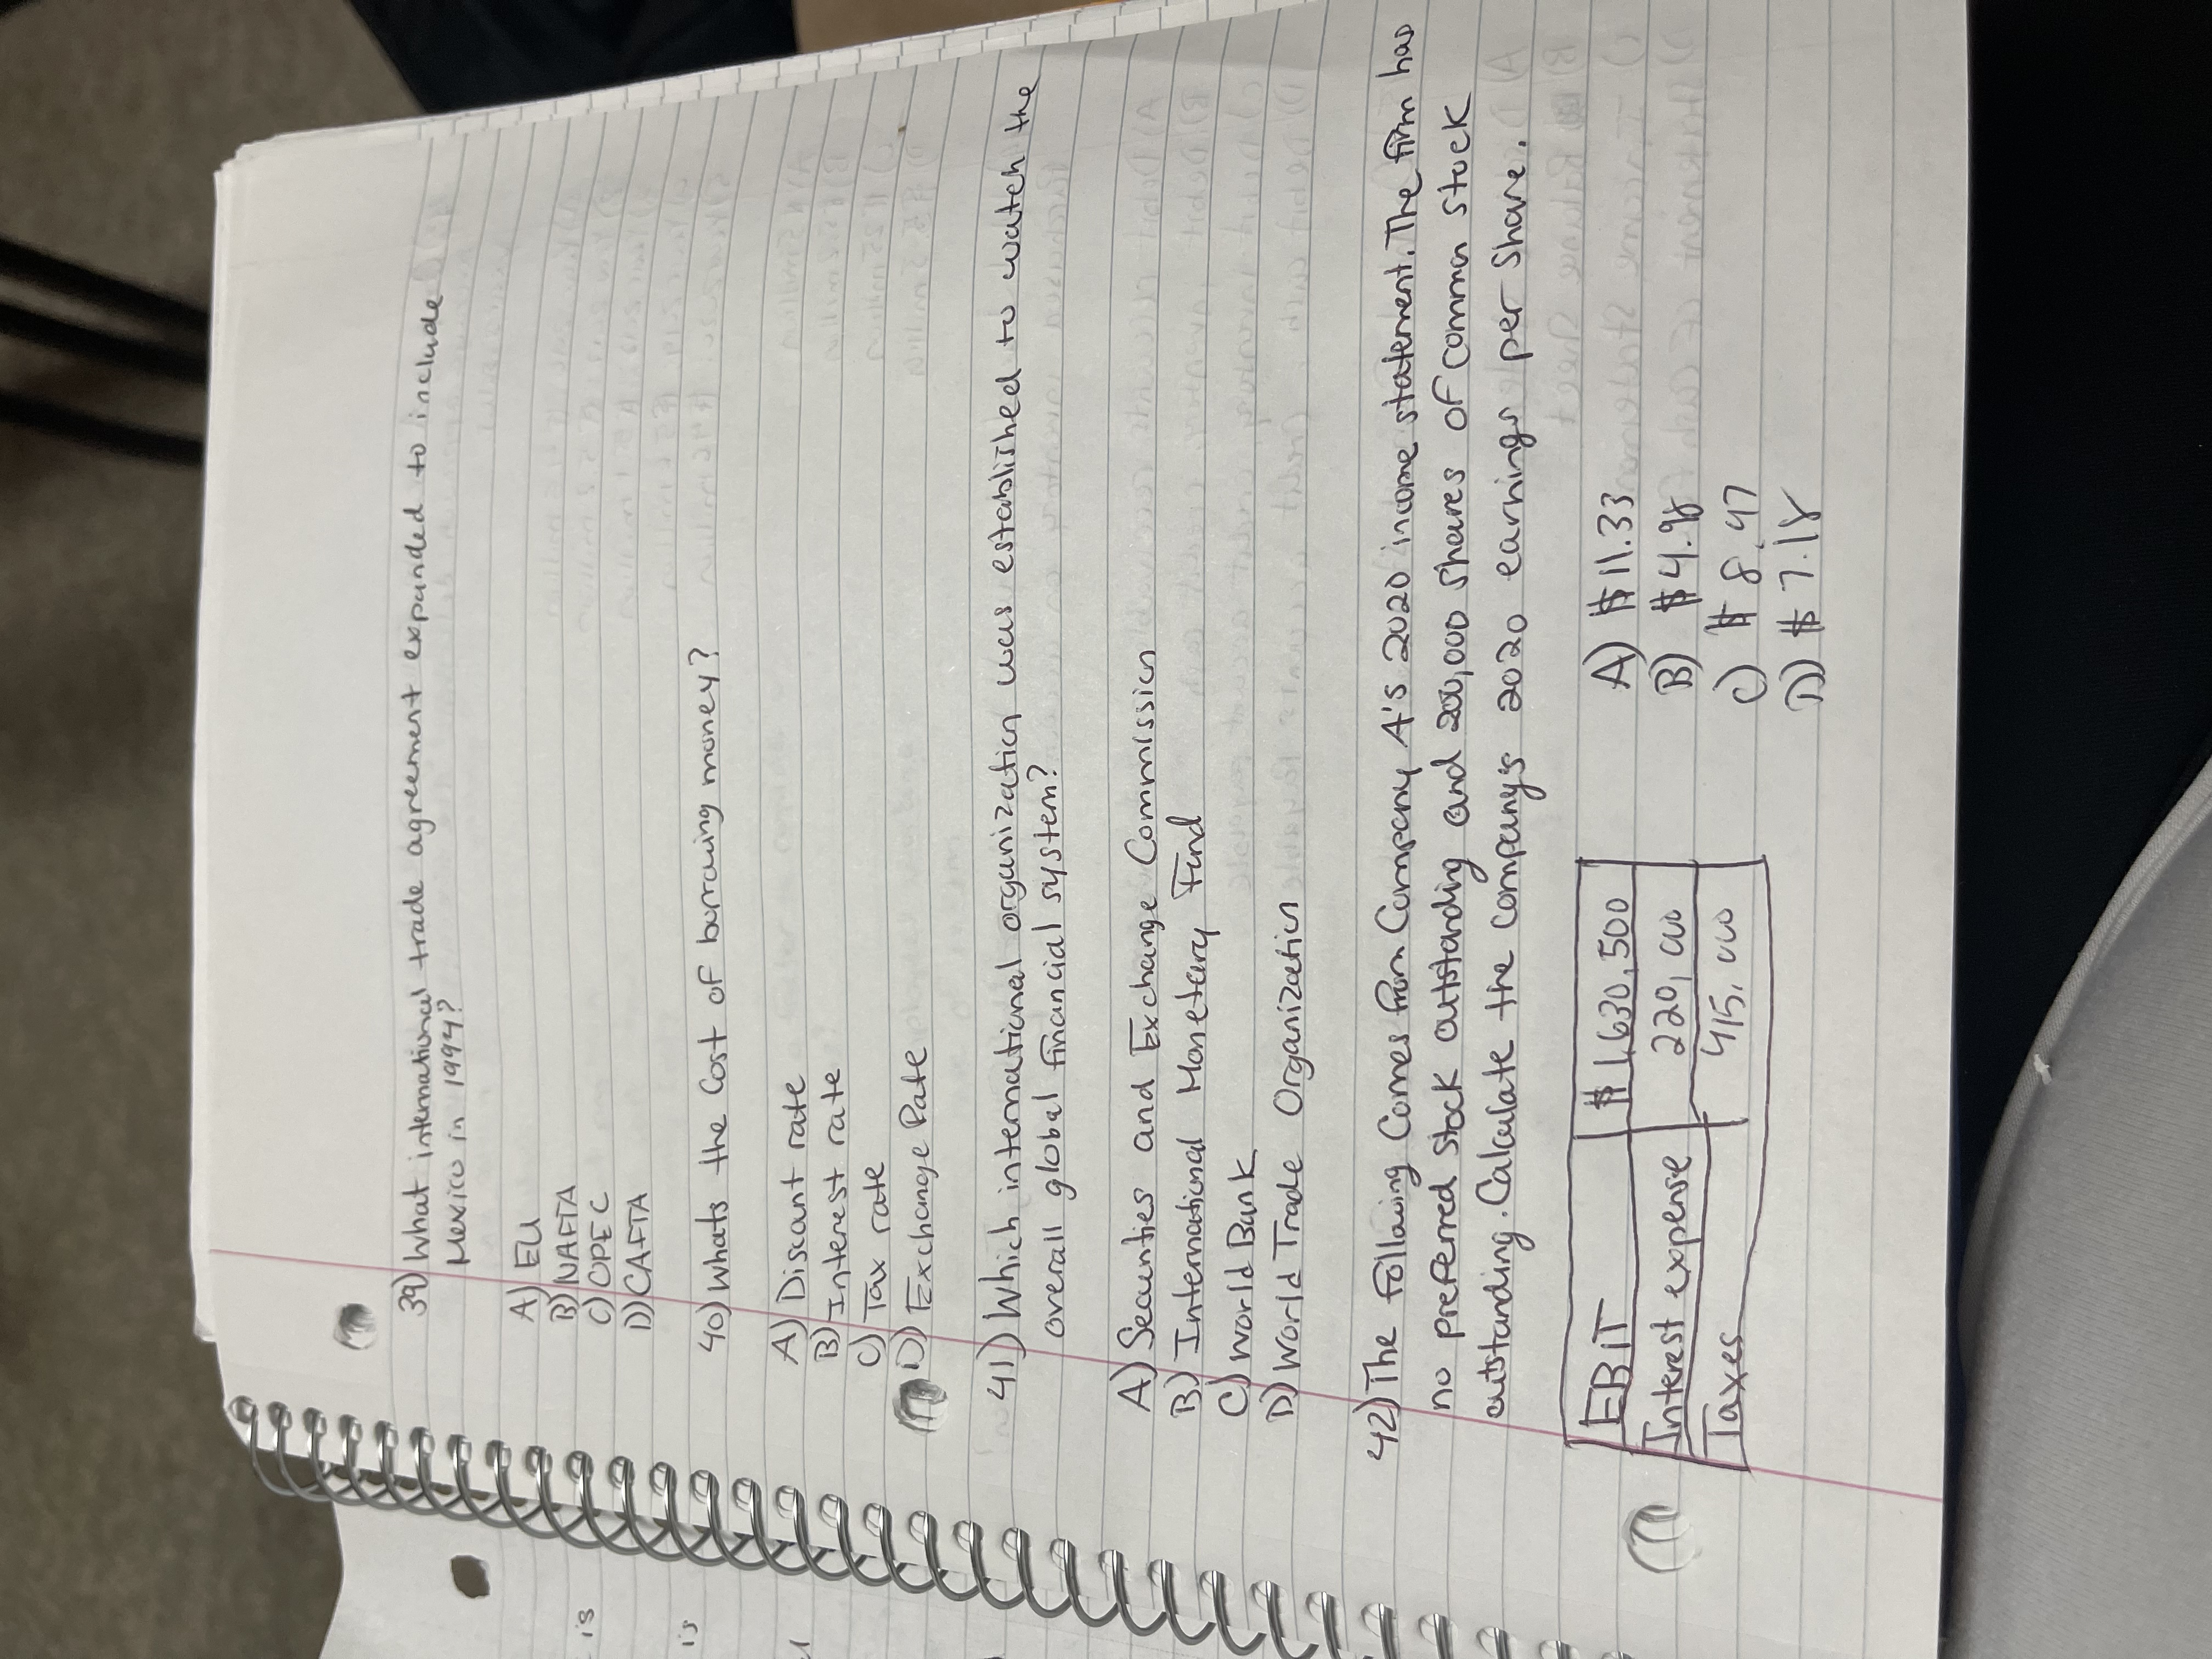 39) What international trade agreement expanded to include
Mexico in 1994?
A) EU
B) NAFTA
C) OPEC
D) CAFTA
40) Whats the cost of borrowing money?
A) Discount rate
B) Interest rate
C) Tax rate
D) Exchange Rate
41) Which international organization was established to watch the
overall global financial system?
A) Securities and Exchange Commission
B) International Monetary Fund
C) World Bank
D) World Trade Organization
42) The following comes from Company A's 2020 income statement. The firm has
no preferred stock outstanding and 200,000 shares of common stock
outstanding. Calculate the company's 2020 earnings per share.
EBIT $1,630,500
Interest expense 220,000
Taxes 415,000
A) $11.33
B) $4.98
C) $8.47
D) $7.18
is
is